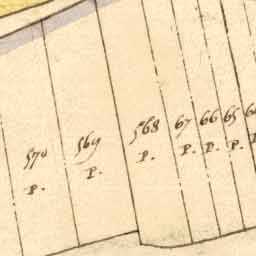 570 P.
569 P.
568 P.
67 P.
66 P.
65 P.